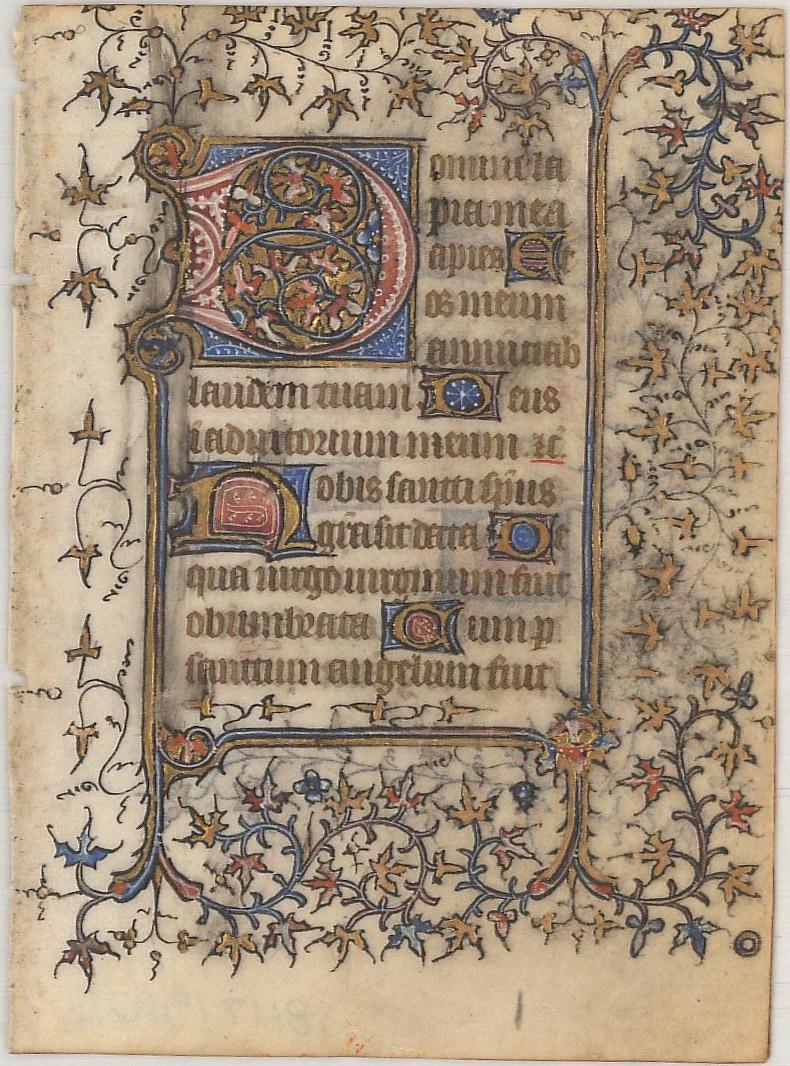 Domine la
bia mea
apies Et
os meum
annuciab
laudem tuam Deus
i adiutorium meum zc̄
Nobis sancti sp̄us
gr̄a sit data De
qua uirgo uirginum fuit
obumbrata Cum p
sanctum angelum fuit